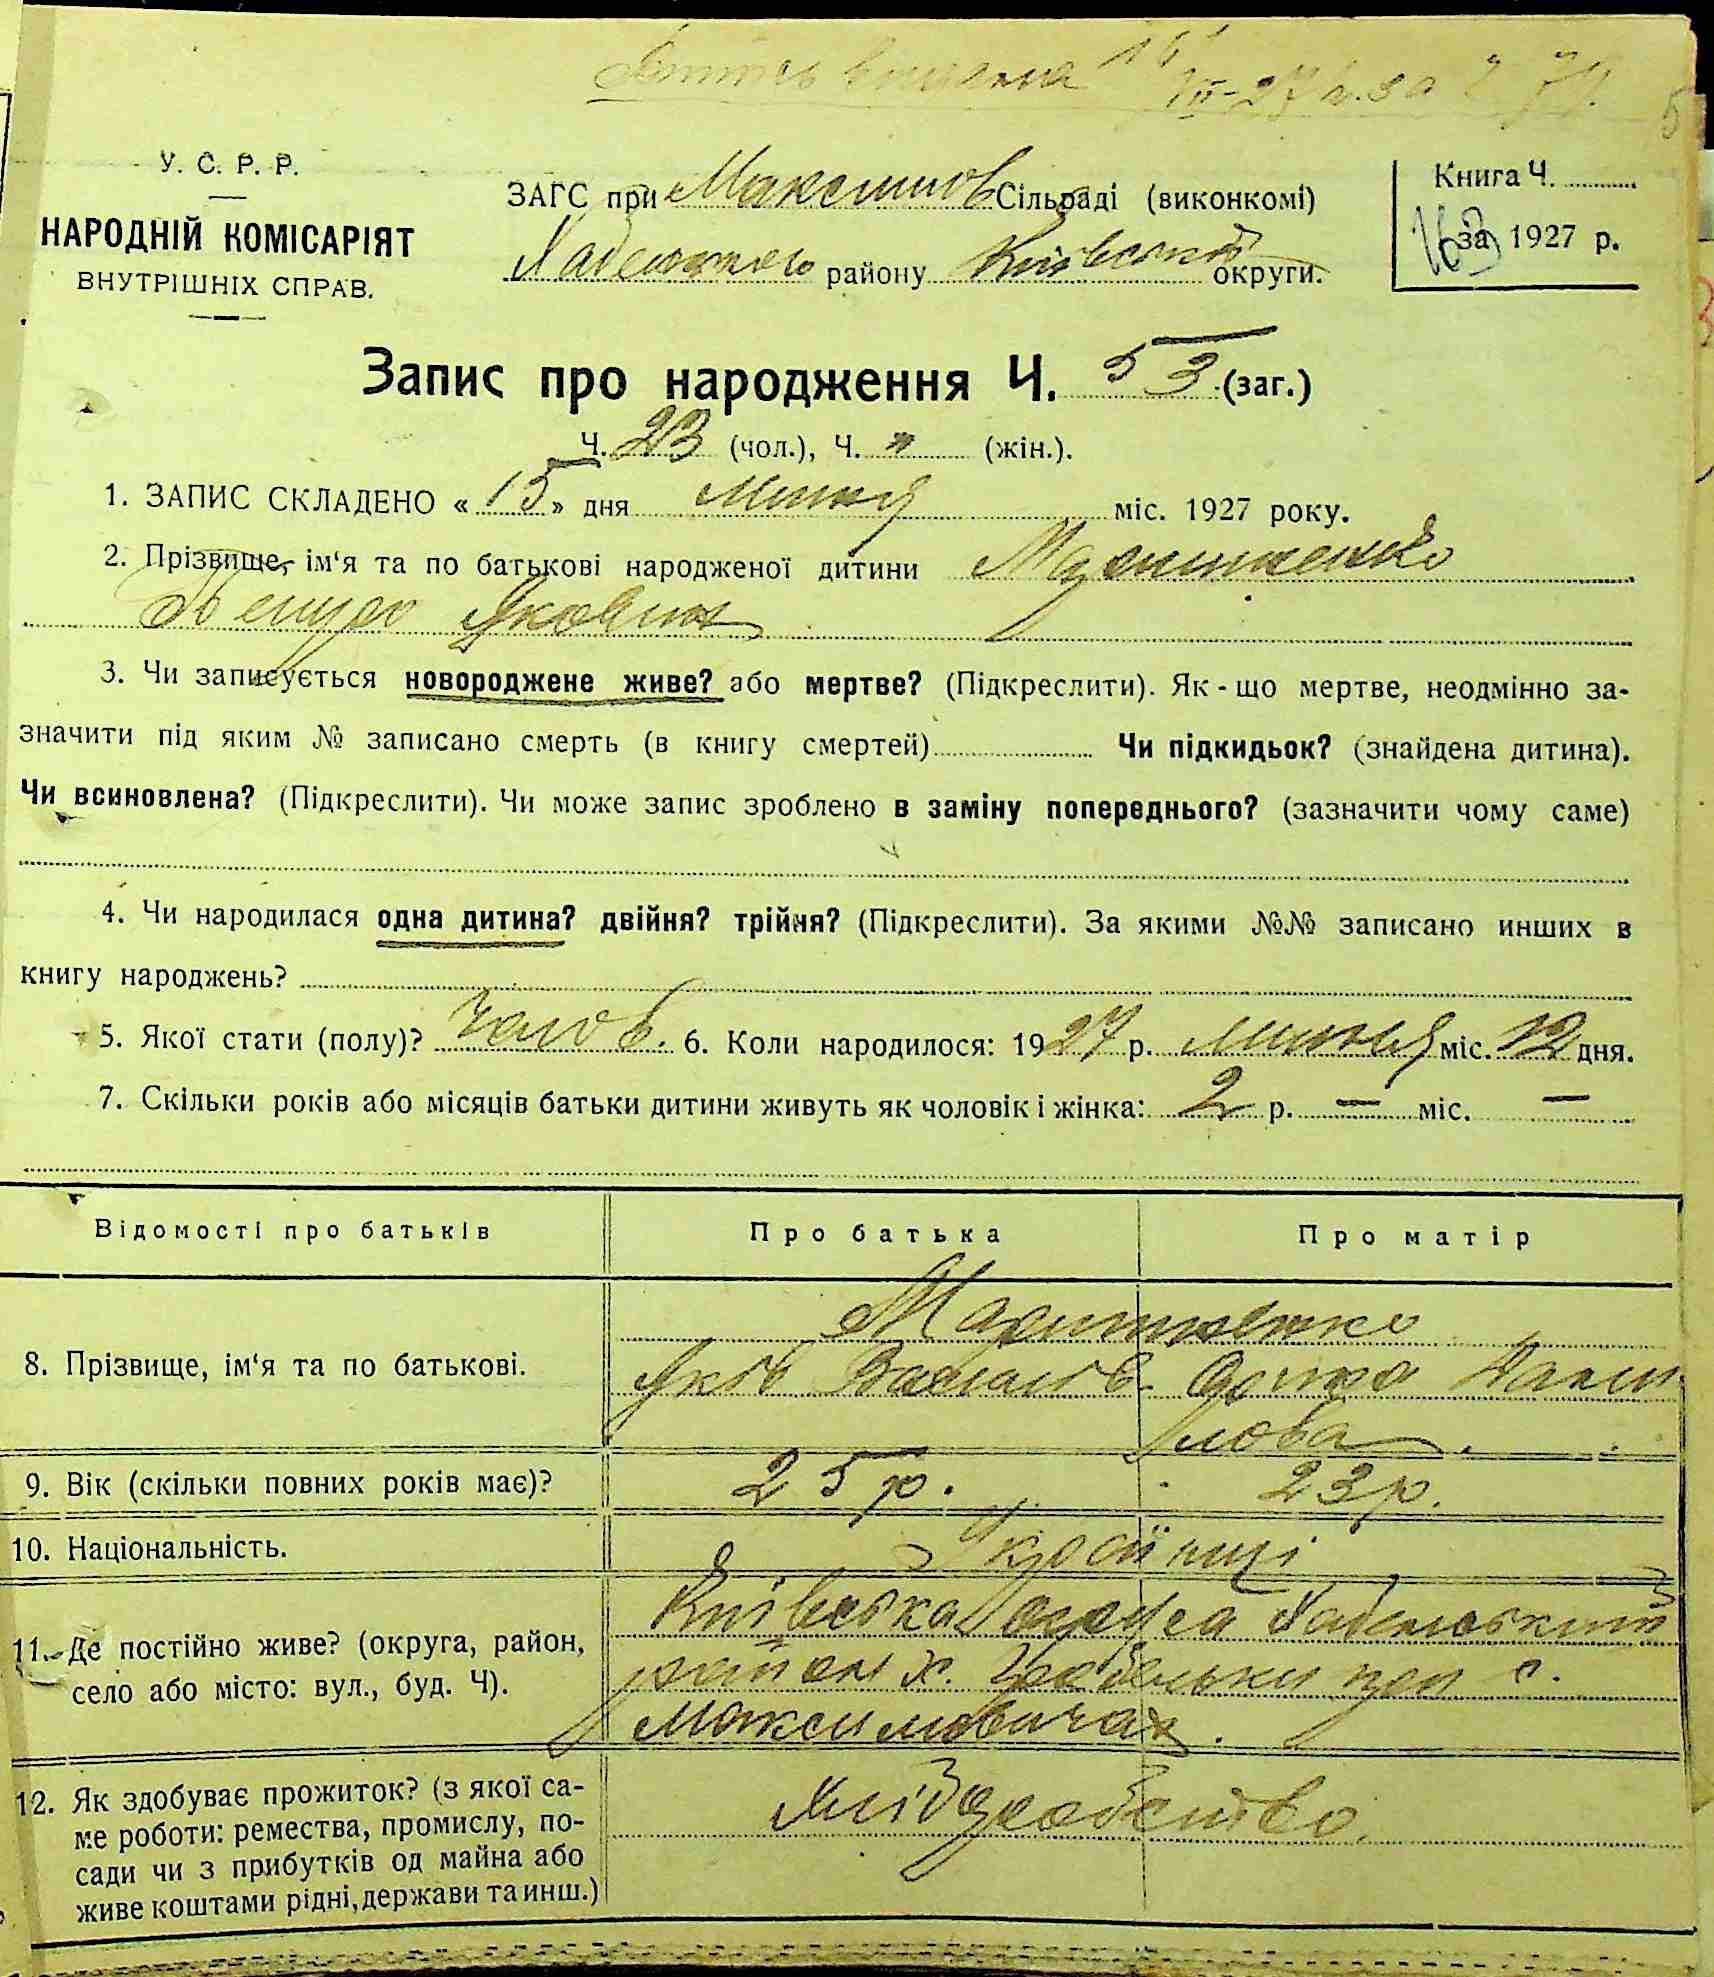 У. С. Р. Р.
НАРОДНІЙ КОМІСАРІЯТ
ВНУТРІШНІХ СПРАВ.
ЗАГС при Максимов Сільраді (виконкомі)
Хабенського району Київської округи.
Книга Ч.
за 1927 р.
Запис про народження Ч. 53 (заг.)
Ч. 23 (чол.), Ч. „ (жін.).
1. ЗАПИС СКЛАДЕНО « 15 » дня Липня міс. 1927 року.
2. Прізвище, ім'я та по батькові народженої дитини
Петро Якович
3. Чи записується новороджене живе? або мертве? (Підкреслити). Як-що мертве, неодмінно за-
значити під яким № записано смерть (в книгу смертей) Чи підкидьок? (знайдена дитина).
Чи всиновлена? (Підкреслити). Чи може запис зроблено в заміну попереднього? (зазначити чому саме)
4. Чи народилася одна дитина? двійня? трійня? (Підкреслити). За якими №№ записано инших в
книгу народжень?
5. Якої стати (полу)? Чолов. 6. Коли народилося: 1927 р. липня міс. 12 дня.
7. Скільки років або місяців батьки дитини живуть як чоловік і жінка: 2 р. — міс. —
Відомості про батьків Про батька Про матір
8. Прізвище, ім'я та по батькові.
Яків Дани
лова
9. Вік (скільки повних років має)? 25 р. 23 р.
10. Національність. Українці
11. Де постійно живе? (округа, район,
село або місто: вул., буд. Ч).
Київська округа Хабенський
район х. при с.
Максимовичах.
12. Як здобуває прожиток? (з якої са-
ме роботи: ремества, промислу, по-
сади чи з прибутків од майна або
живе коштами рідні, держави та инш.)
Хлібробство